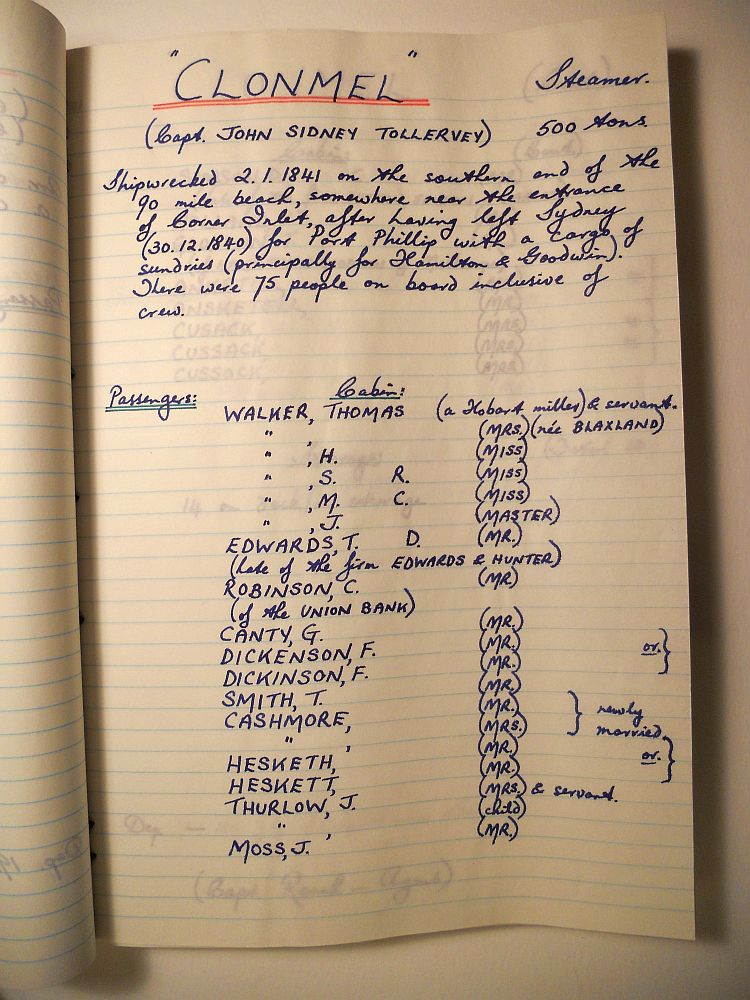 "CLONMEL" Steamer.
(Capt. JOHN SIDNEY TOLLERVEY) 500 tons.
Shipwrecked 2.1.1841 on the southern end of the
90 mile beach, somewhere near the entrance
of Corner Inlet, after having left Sydney
(30.12.1840) for Port Phillip with a cargo of
sundries (principally for Hamilton & Goodwin).
There were 75 people on board inclusive of
crew.
Passengers: Cabin:
WALKER, THOMAS (a Hobart miller) & servant.
" , (MRS.) (née BLAXLAND)
" , H. (MISS)
" , S. R. (MISS)
" , M. C. (MISS)
" , J. (MASTER)
EDWARDS, T. D. (MR.)
(late of the firm EDWARDS & HUNTER)
ROBINSON, C. (MR)
(of the UNION BANK)
CANTY, G. (MR.)
DICKENSON, F. (MR.) } or.
DICKINSON, F. (MR.)
SMITH, T. (MR.)
CASHMORE, (MR.) } newly
" , (MRS.) married.
HESKETH, (MR.) } or.
HESKETT, (MR.)
THURLOW, J. (MRS. & servant.
" , (child)
MOSS, J. (MR.)